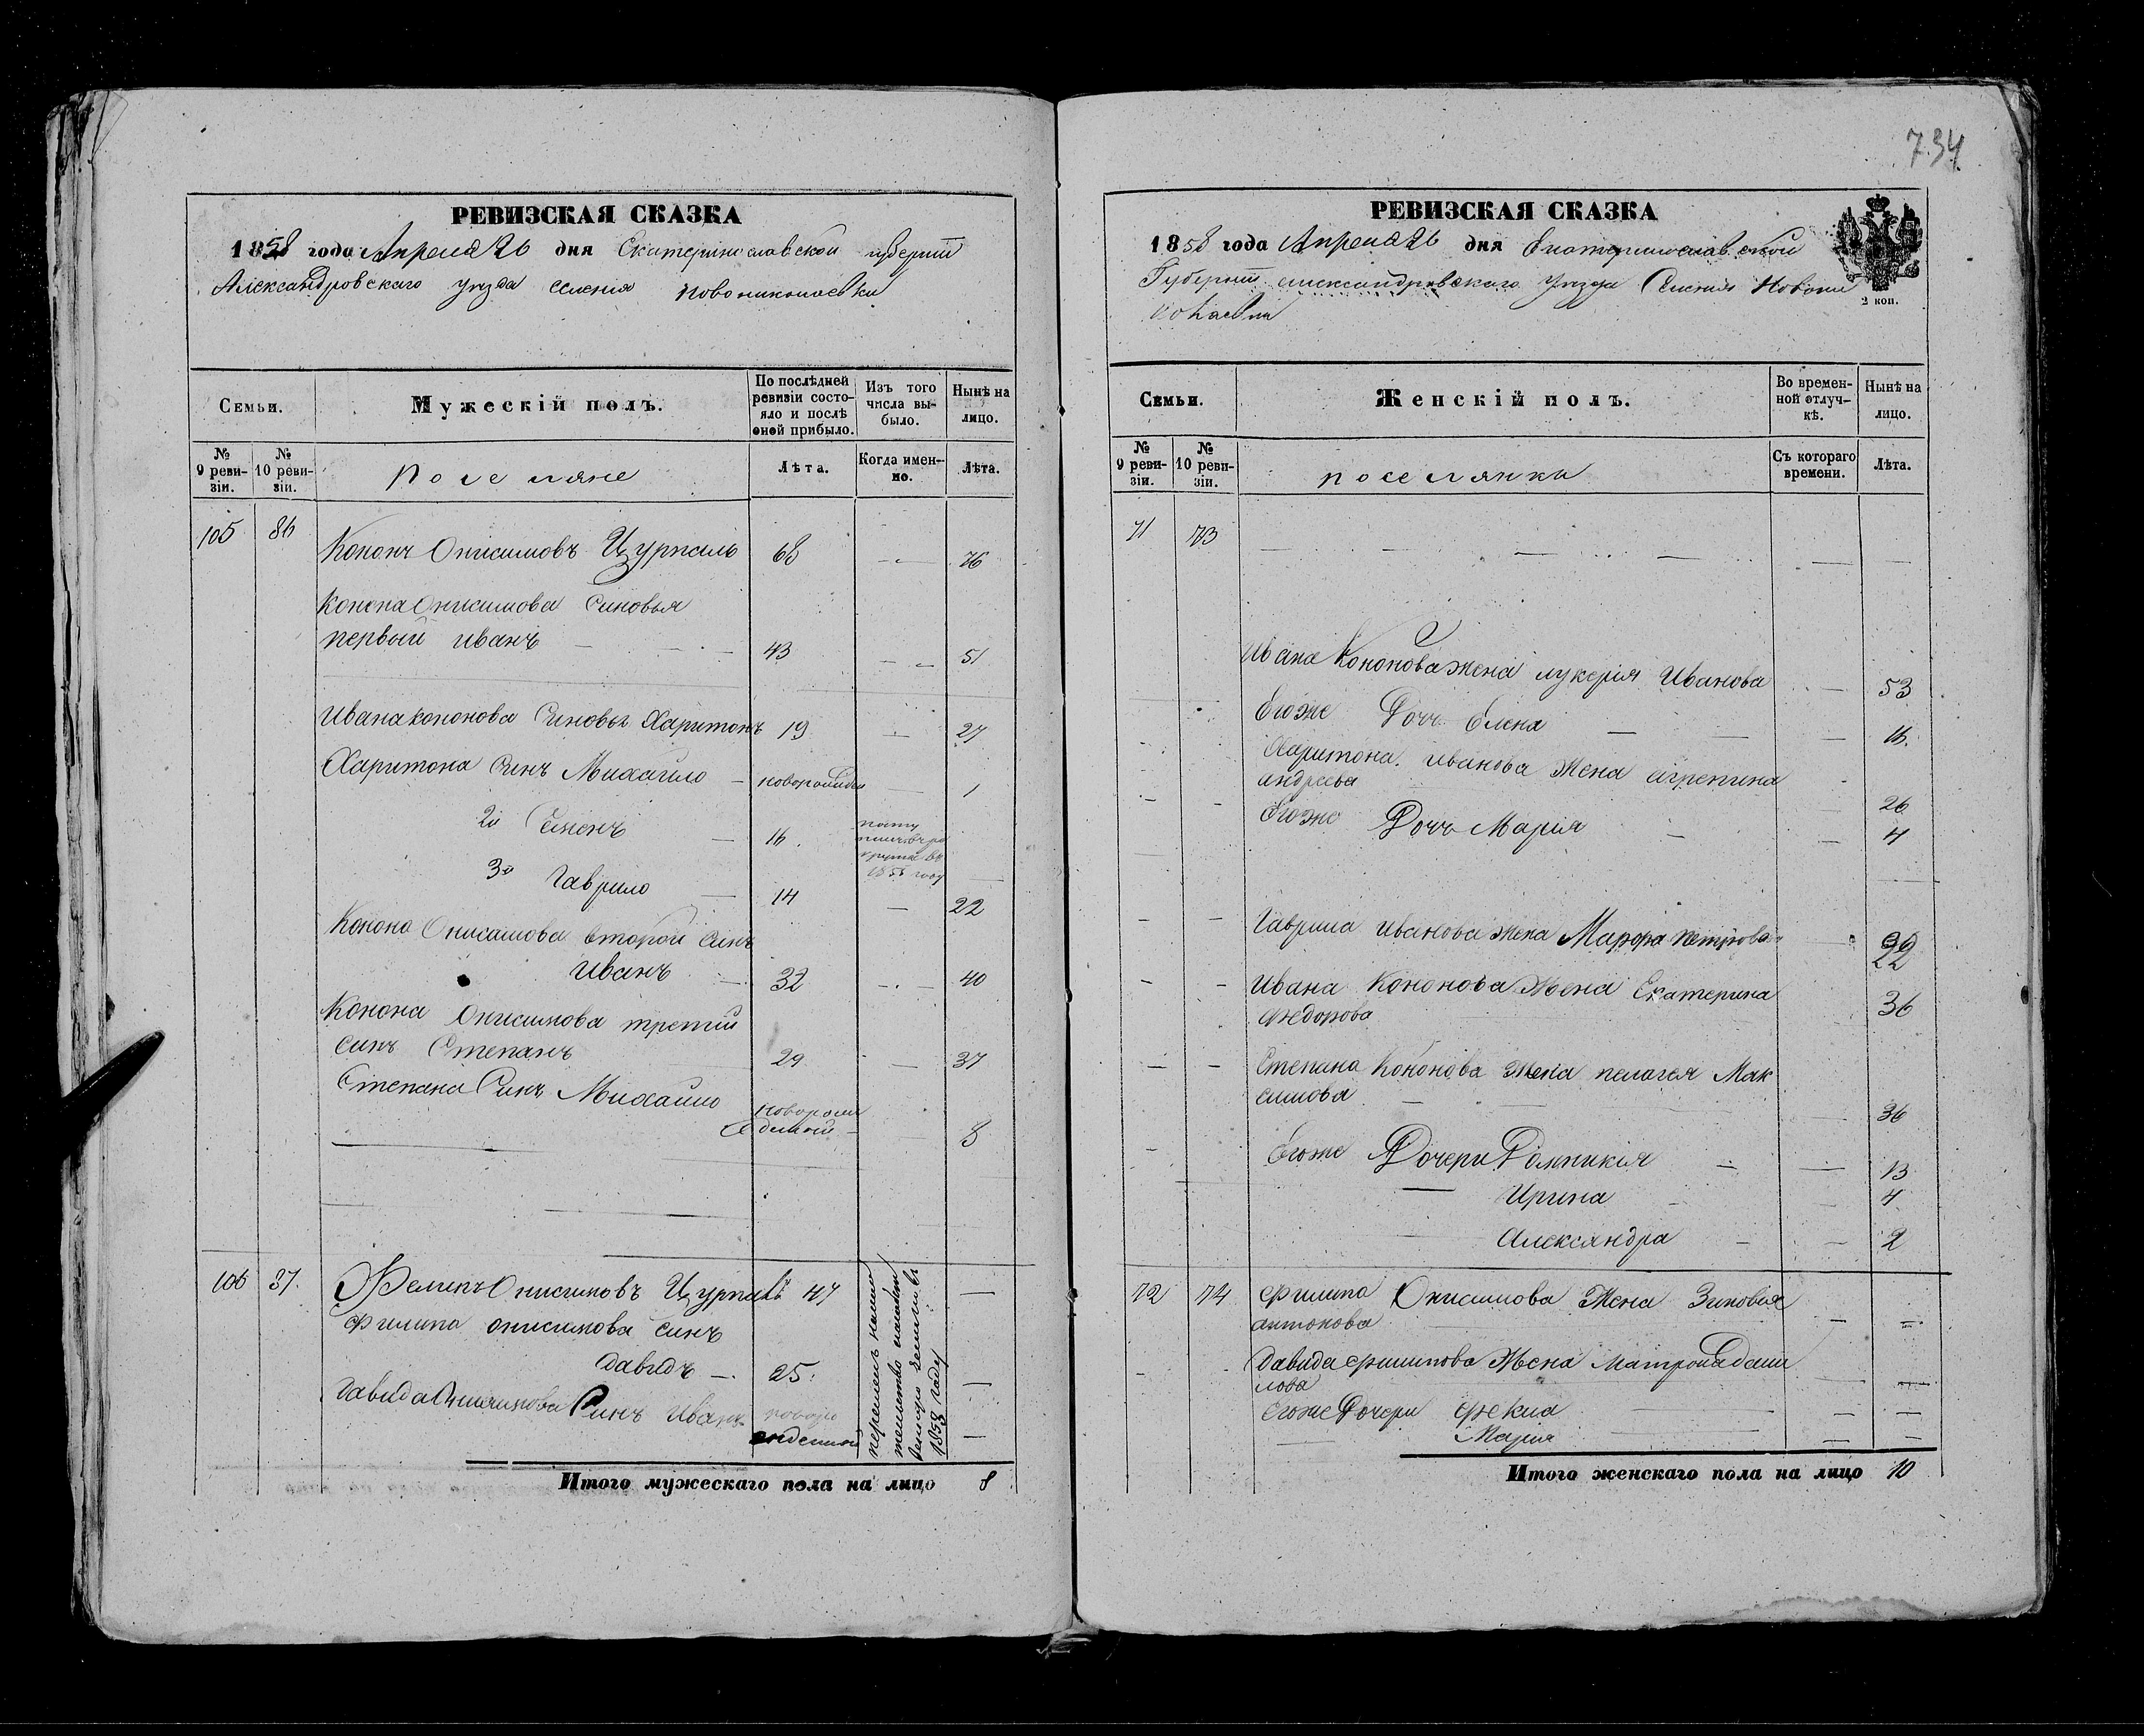 734
РЕВИЗСКАЯ СКАЗКА
1858 года Апреля 26 дня Екатеринославской губернии
Александровскаго уезда селения Новониколаевки
Семьи.
Мужескій полъ.
По послѣдней ревизіи состояло и послѣ оной прибыло.
Изъ того числа выбыло.
Нынѣ на лицо.
№ 9 ревизіи.
№ 10 ревизіи.
Поселяне
Лѣта.
Когда именно.
Лѣта.
105 86 Кононъ Онисимовъ Цурпаль 68 76
Конона Онисимова Синовья
первый Иванъ 43 51
Ивана Кононова Синовья Харитонъ 19 27
Харитона Синъ Михайло 1
2й Семенъ 16
3й Гаврило 14 22
Конона Онисимова второй синъ
Иванъ 32 40
Конона Онисимова третий
синъ Степанъ 29 37
Степана Синъ Михайло 8
106 87. Филипъ Онисимовъ 47
Филипа Онисимова синъ
Давидъ 25.
Синъ Иванъ
1858 году
Итого мужескаго пола на лицо 8
РЕВИЗСКАЯ СКАЗКА
1858 года Апреля 26 дня Екатеринославской
Губернии Александровскаго Уезда Селения Новони
колаевки
2 коп.
Семьи.
Женскій полъ.
Во временной отлучкѣ.
Нынѣ на лицо.
№ 9 ревизіи.
№ 10 ревизіи.
поселянки
Съ котораго времени.
Лѣта.
71 73
Ивана Кононова жена лукерія Иванова 53
Егоже Дочь Елена 16.
Харитона Иванова Жена агрепина
андреева 26
Егоже Дочь Марія 4
Гаврила Иванова жена Марфа петрова 22
Ивана Кононова Жена Екатерина
федорова 36
Степана Кононова жена пелагея Мак
симова 36
Егоже Дочери Домникія 13
Ирина 4
Александра 2
72 74 Филипа Онисимова Жена Зиновия
антонова
Давида филипова Жена Матрона дани
лова
Егоже Дочери Фекла
Мария
Итого женскаго пола на лицо 10